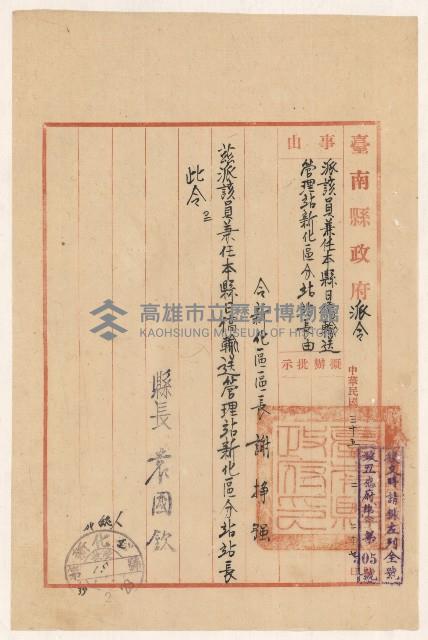 臺南縣政府派令
事由
派該員兼任本縣日僑輸送
管理站新化區分站站長由
擬辦批示
中華民國三十五 二 二十七日
令新化區區長謝掙強
茲派該員兼任本縣日僑輸送管理站新化區分站站長
此令
縣長 袁國欽
復文時請錄左列全號
第 05 號
臺南縣政府印
新化
高雄市立歷史博物館
KAOHSIUNG MUSEUM OF HISTORY